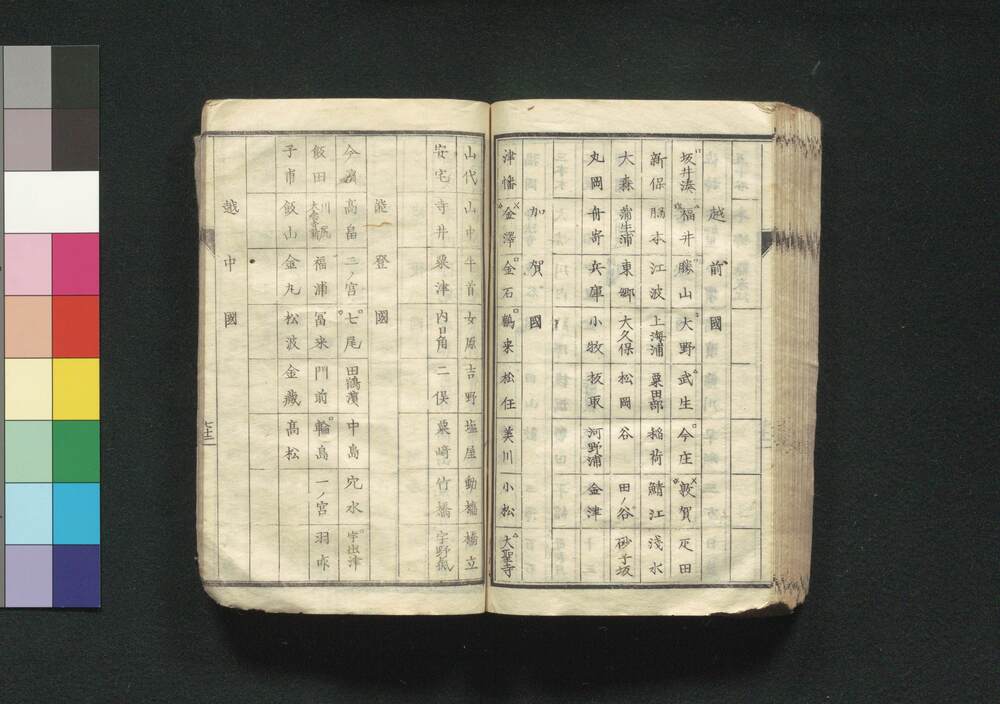 越前國
坂井湊 福井 勝山 大野 武生 今庄 敦賀 疋田
新保 脇本 江波 上海浦 粟田部 稲荷 鯖江 淺水
大森 蒲生浦 東郷 大久保 松岡 谷 田ノ谷 砂子坂
丸岡 舟寄 兵庫 小牧 板取 河野浦 金津
加賀國
津幡 金澤 金石 鶴来 松任 美川 小松 大聖寺
山代 山中 牛首 女原 吉野 塩屋 動橋 橋立
安宅 寺井 粟津 内日角 二俣 粟崎 竹橋 宇野氣
能登國
今濱 高畠 二ノ宮 七尾 田鶴濱 中島 穴水 宇出津
飯田 川尻 福浦 冨来 門前 輪島 一ノ宮 羽咋
子市 飯山 金丸 松波 金藏 髙松
越中國